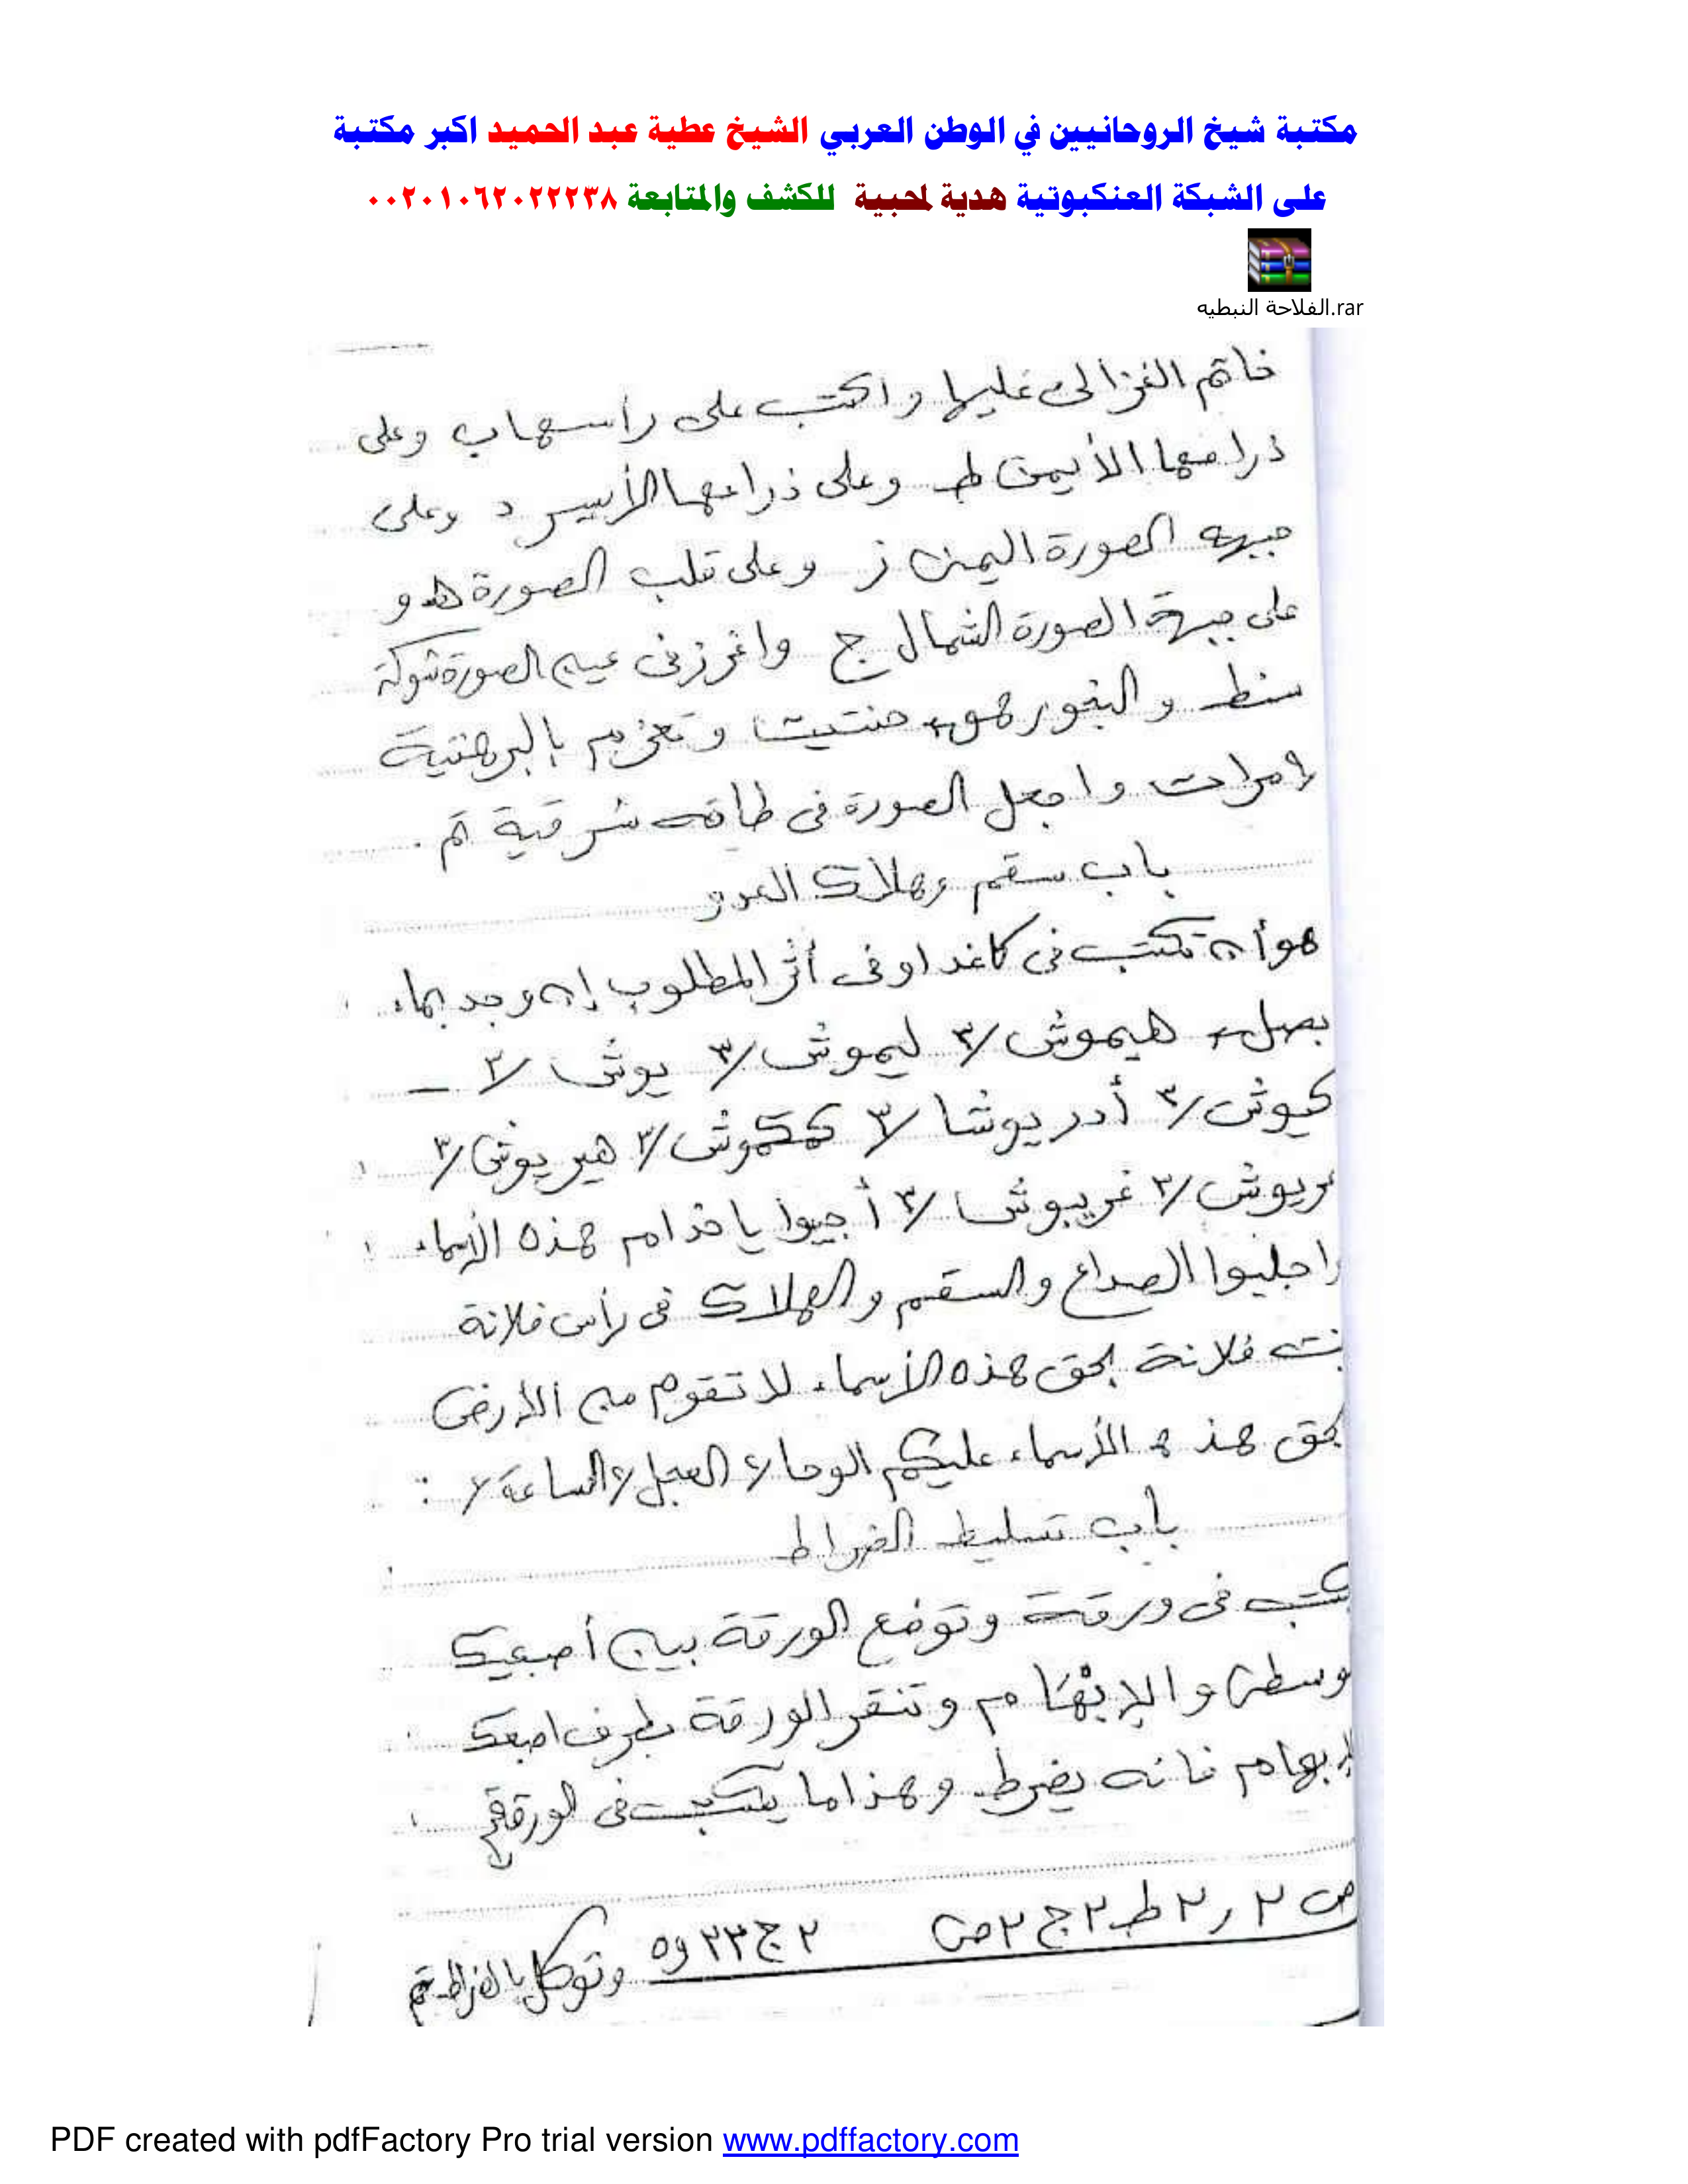 مكتبة شيخ الروحانيين في الوطن العربي الشيخ عطية عبد الحميد اكبر مكتبة
على الشبكة العنكبوتية هدية لمحبية للكشف والمتابعة ٠٠٢٠١٠٦٢٠٢٢٢٣٨
الفلاحة النبطيه.rar
خاتم الغزالى عليها واكتب على رأسها ب وعلى
ذراعها الأيمن ط وعلى ذراعها الأيسر د وعلى
جبهه الصورة اليمن ز وعلى قلب الصورة هـ و
على جبهة الصورة الشمال ج واغرز فى عين الصورة شوكة
سنط والبخور هو حنتيت وتعزم بالبرهتية
مرات واجعل الصورة فى طاقه شرقية تم .
باب سقم وهلاك العدو
هو أن تكتب فى كاغد او فى أثر المطلوب إن وجد بماء
بصل هيموش /٣ ليموش /٣ يوش /٣ _
كيوش /٣ أدريوشا /٣ كمكموش /٣ هيريوش /٣
عريوش /٣ غريبوش /٣ أجيبوا يا خدام هذه الأسماء
واجلبوا الصداع والسقم والهلاك فى رأس فلانة
بنت فلانة بحق هذه الأسماء لا تقوم من الأرض
بحق هذه الأسماء عليكم الوحا ٢ العجل ٢ الساعة ٢ :
باب تسليط الضراط
يكتب فى ورقة وتوضع الورقة بين أصبعيك
الوسطى والإبهام وتنقر الورقة بطرف اصبعك
الإبهام فانه يضرط وهذا ما يكتب فى الورقة
ص ٢ ر ٢ ط ٢ ج ٢ ص ٢ ج ٣٣ و ٥ وتوكل بالضراط تم
PDF created with pdfFactory Pro trial version www.pdffactory.com